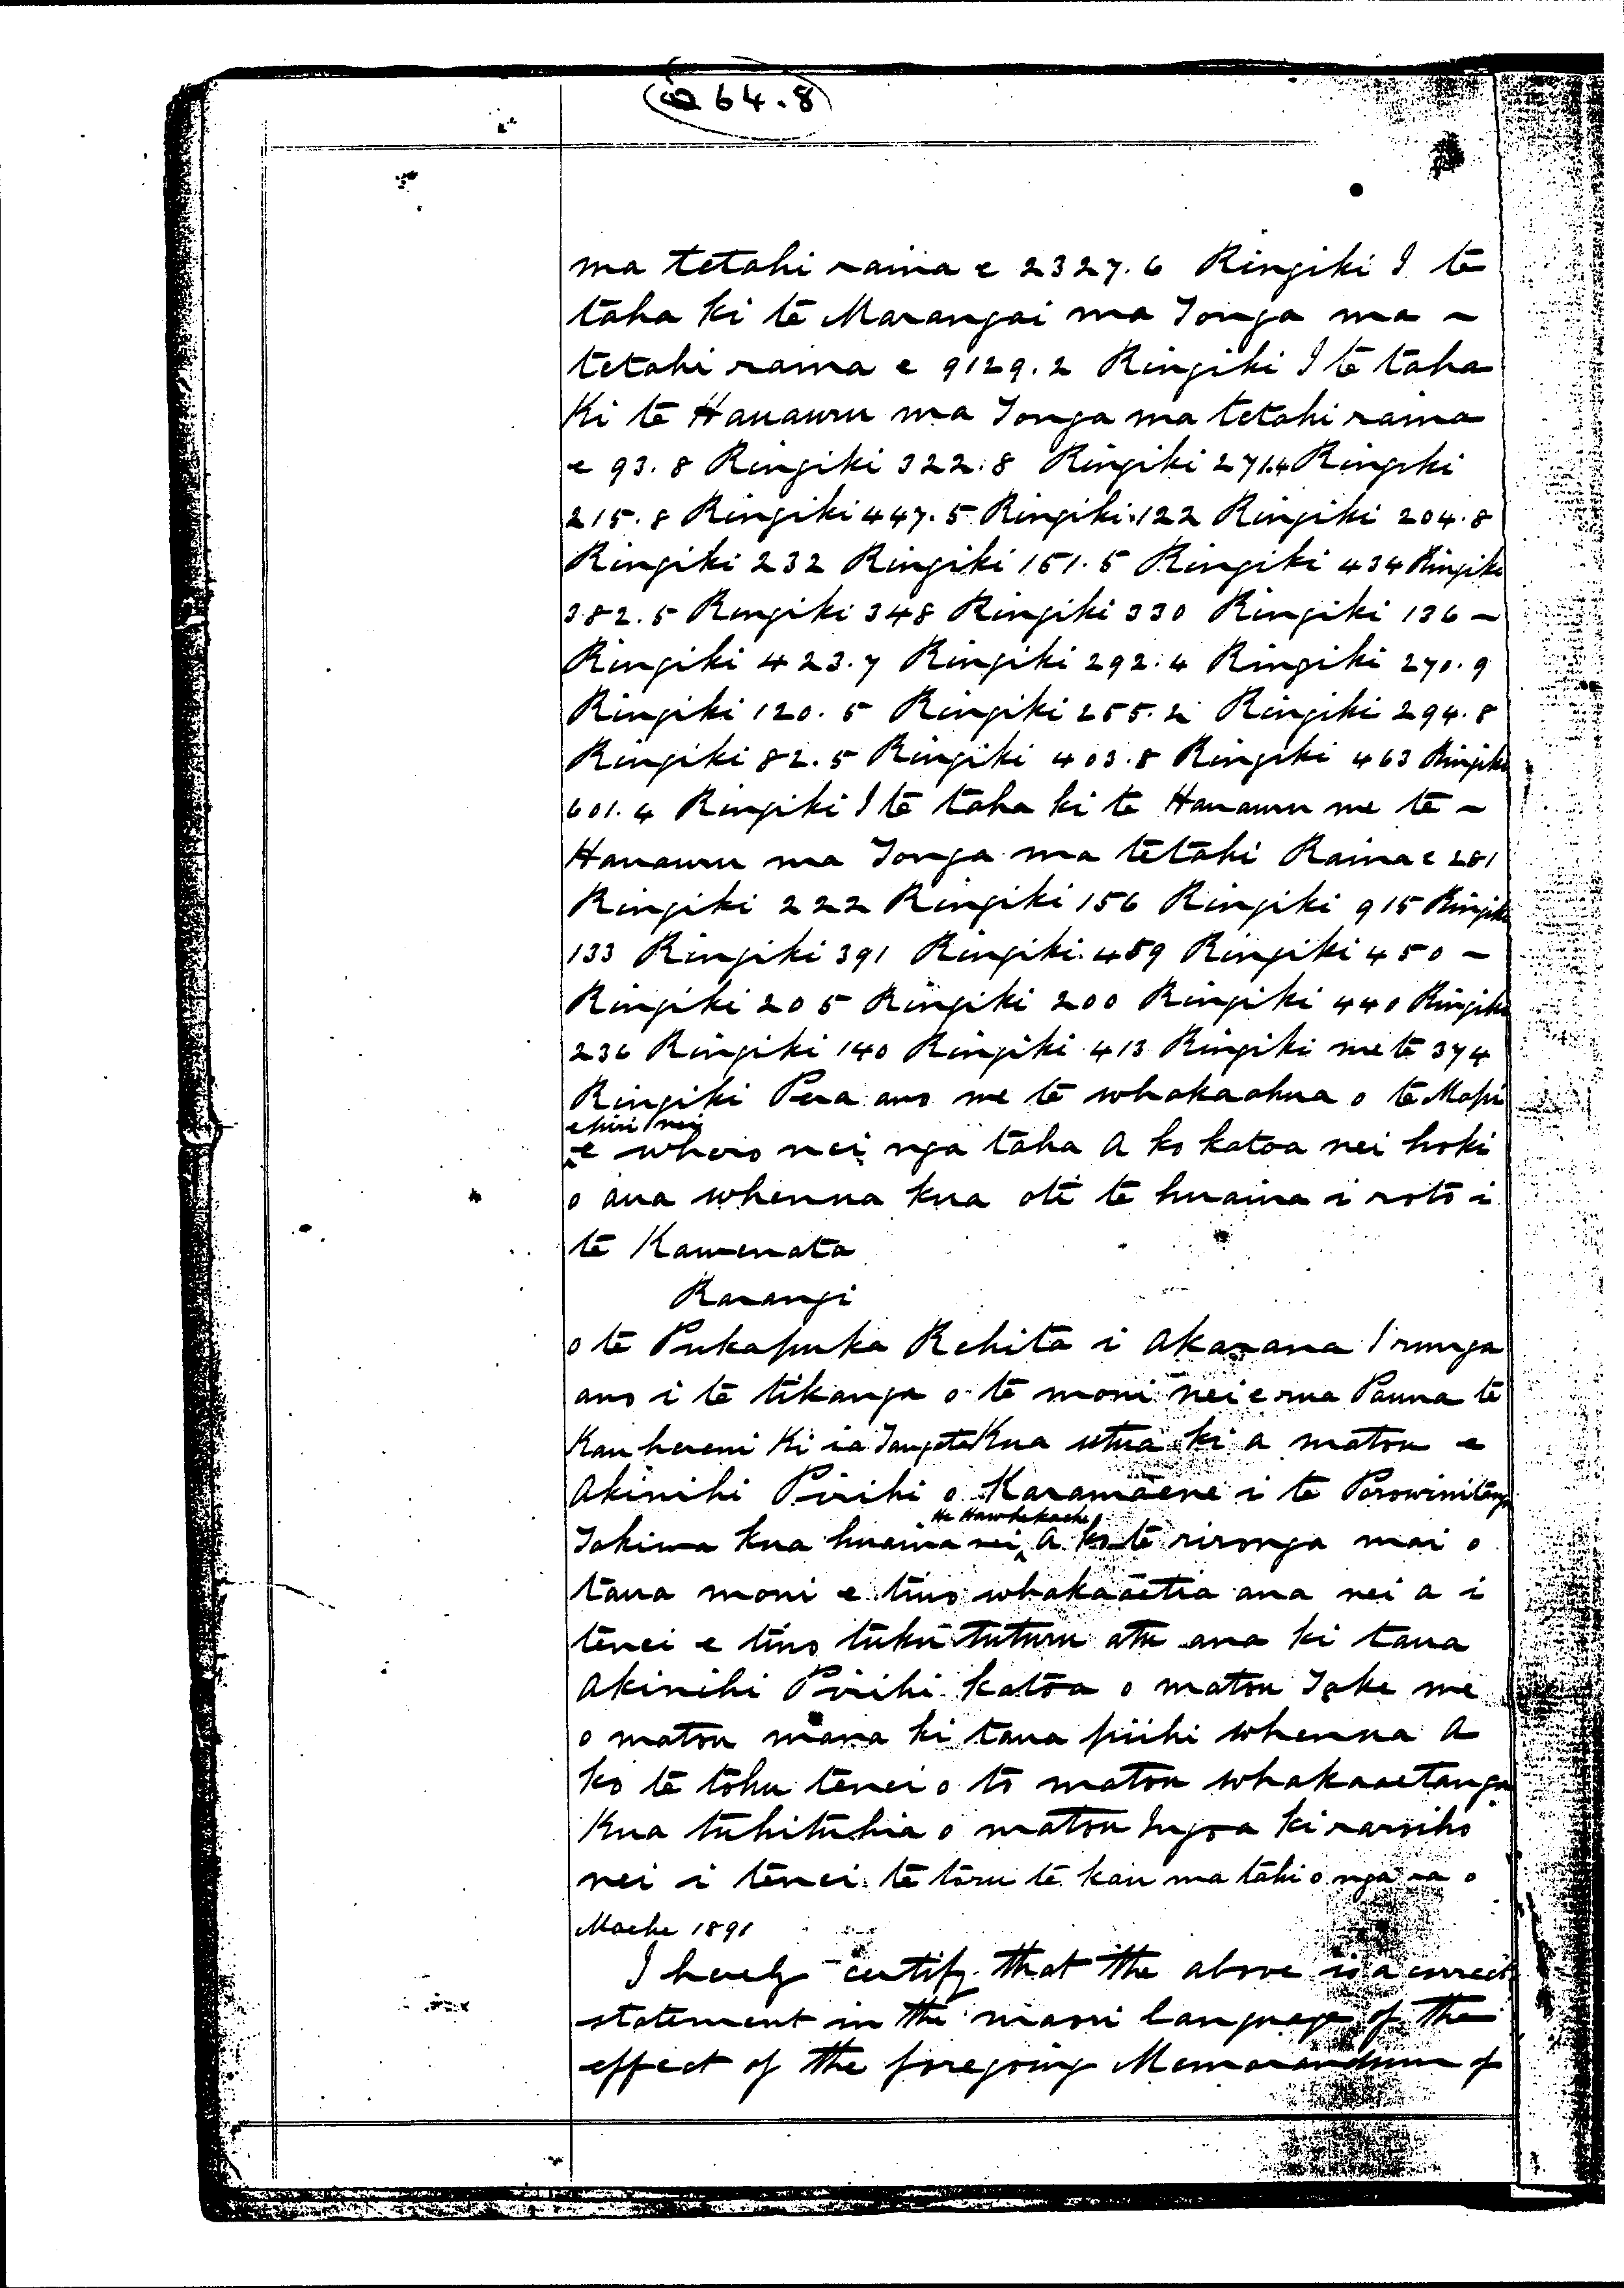 264.8
ma tetahi raina e 2327.6 Ringiki I te
taha ki te Marangai ma Tonga ma ~
tetahi raina e 9129.2 Ringiki I te taha
Ki te Hauauru ma Tonga ma tetahi raina
e 93.8 Ringiki 322.8 Ringiki 271.4 Ringiki
215.8 Ringiki 447.5 Ringiki 122 Ringiki 204.8
Ringiki 232 Ringiki 151.5 Ringiki 434 Ringiki
382.5 Ringiki 348 Ringiki 330 Ringiki 136 ~
Ringiki 423.7 Ringiki 292.4 Ringiki 270.9
Ringiki 120.5 Ringiki 255.2 Ringiki 294.8
Ringiki 82.5 Ringiki 403.8 Ringiki 463 Ringiki
601.4 Ringiki I te taha ki te Hauauru me te ~
Hauauru ma Tonga ma tetahi Raina e 281
Ringiki 222 Ringiki 156 Ringiki 915 Ringiki
133 Ringiki 391 Ringiki 459 Ringiki 450 ~
Ringiki 205 Ringiki 200 Ringiki 440 Ringiki
236 Ringiki 140 Ringiki 413 Ringiki me te 374
Ringiki Pera ano me te whakaahua o te Mapi
e piri nei
e whero nei nga taha A ko katoa nei hoki
o aua whenua kua oti te huaina i roto i
te Kawenata
Rarangi
o te Pukapuka Rehita i Akarana I runga
ano i te tikanga o te moni nei e rua Pauna te
Kau hereni Ki ia Tangata Kua utua ki a matou e
Akinihi Pirihi o Karamaene i te Porowinitanga
He Hawhekaehe
Takiwa kua huaina nei A ko te rironga mai o
taua moni e tino whakaaetia ana nei a i
tenei e tino tuku tuturu atu ana ki taua
Akinihi Pirihi katoa o matou Take me
o matou mana ki taua piihi whenua A
ko te tohu tenei o to matou whakaaetanga
Kua tuhituhia o matou Ingoa ki raroiho
nei i tenei te toru te kau ma tahi o nga ra o
Maehe 1891
I hereby certify that the above is a correct
statement in the maori language of the
effect of the foregoing Memorandum of